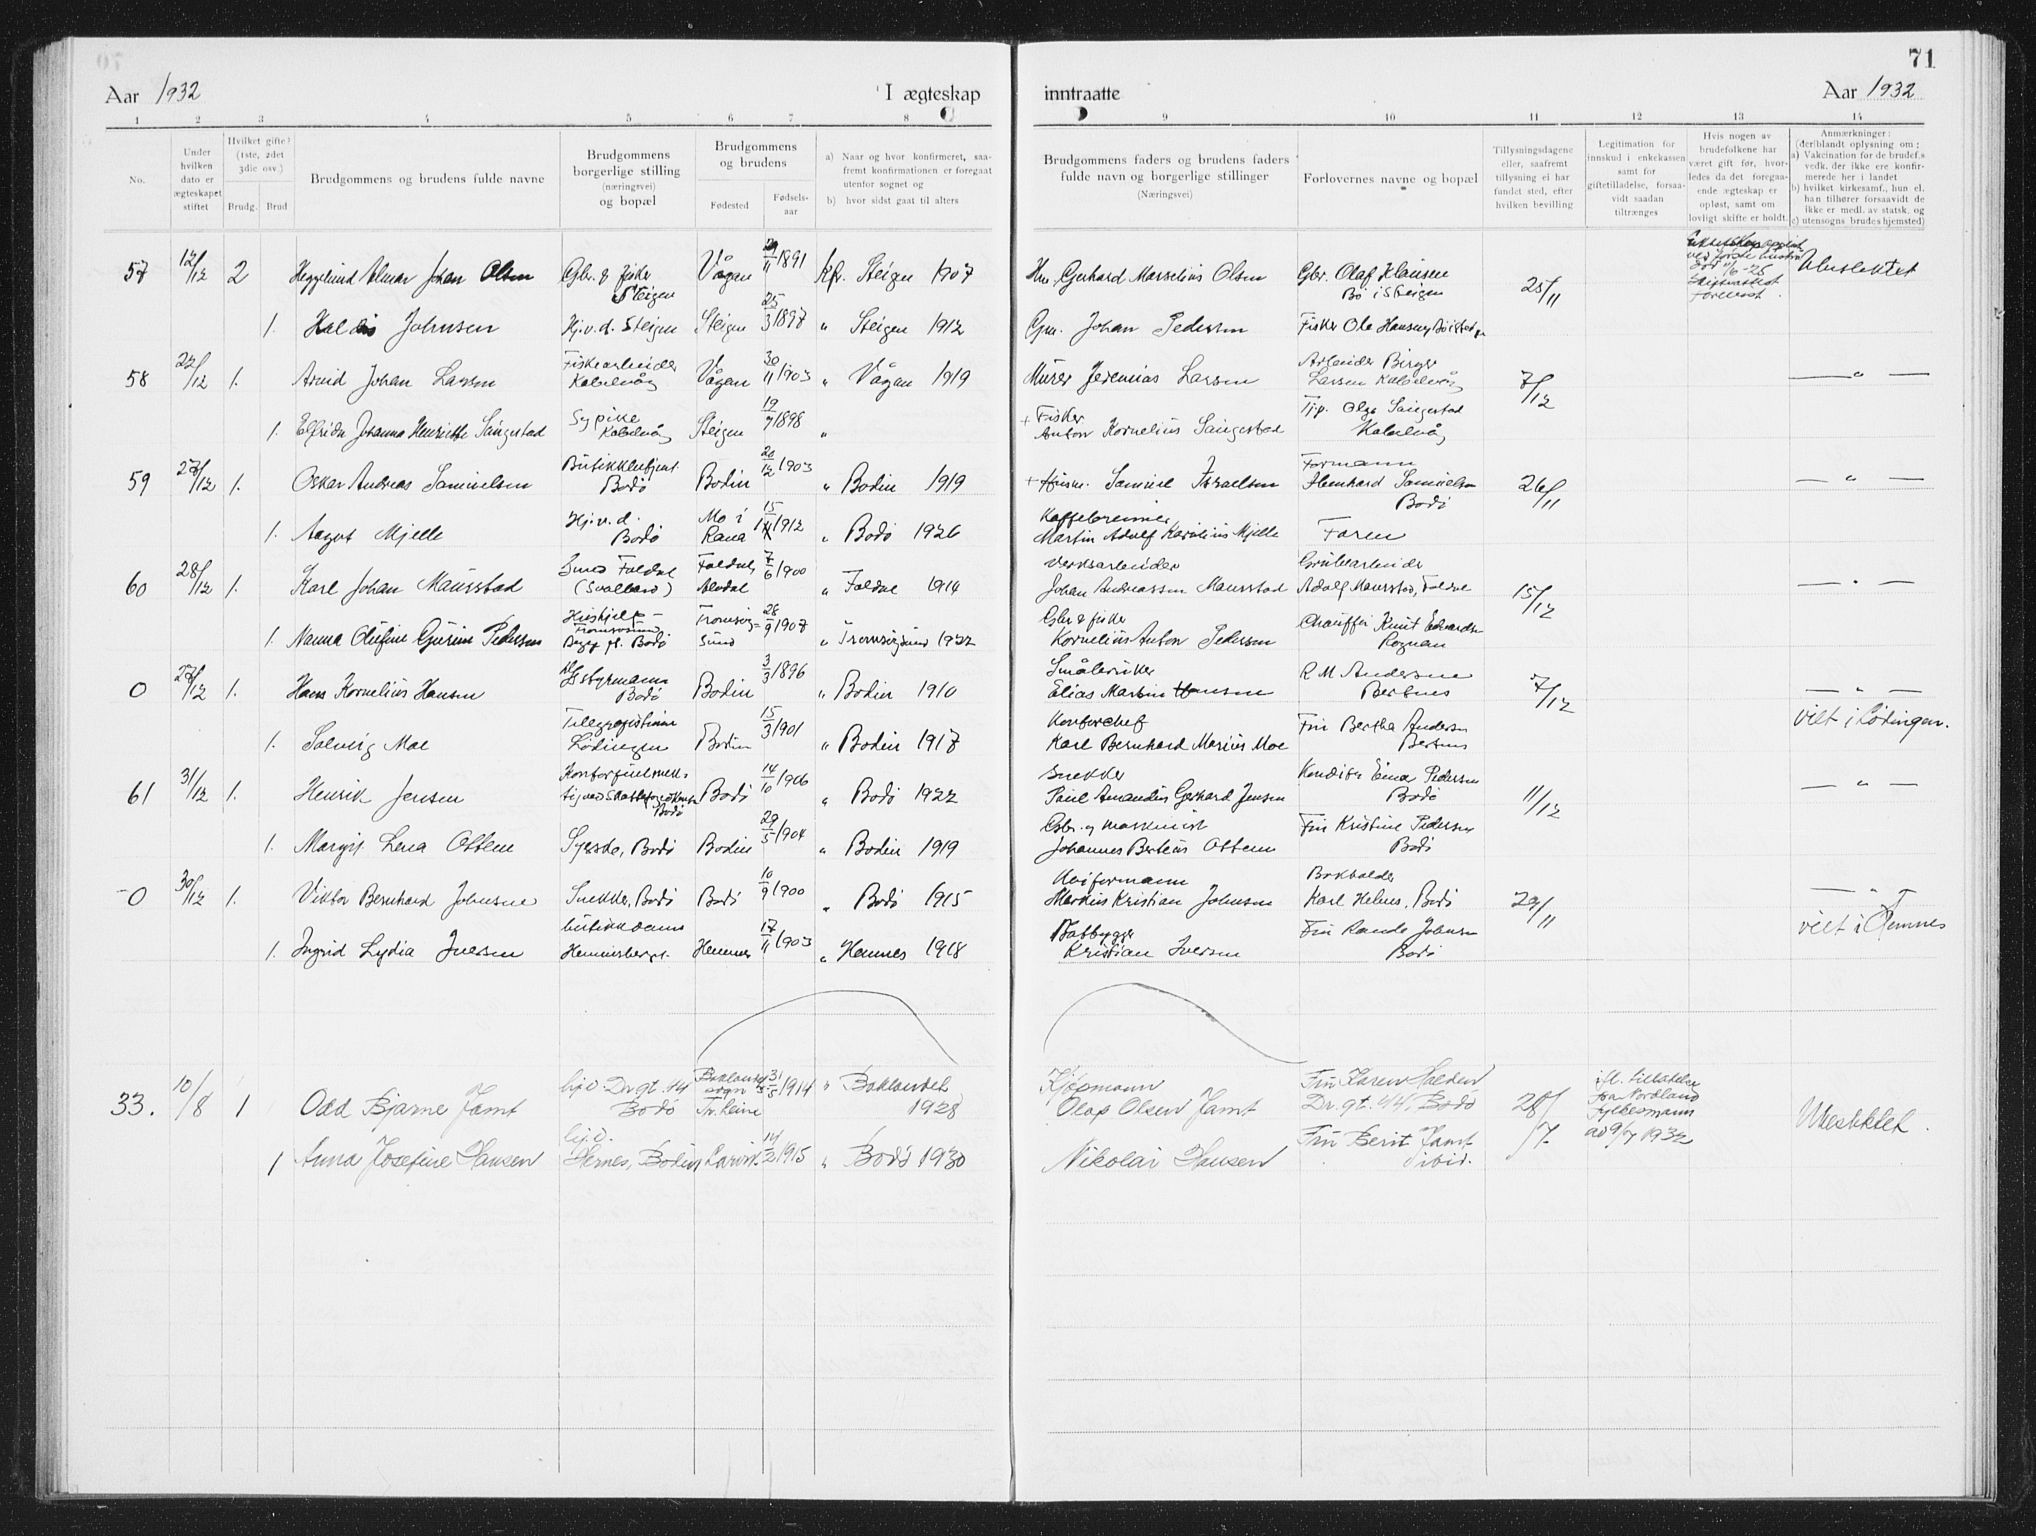 71
Aar 1932
I ægteskap
inntraatte
Aar 1932
1 2 3 4 5 6 7 8 9 10 11 12 13 14
No.
Under hvilken dato er ægteskapet stiftet
Hvilket gifte? (1ste, 2det 3die osv.)
Brudg. Brud
Brudgommens og brudens fulde navne
Brudgommens borgerlige stilling (næringsvei) og bopæl
Brudgommens og brudens
Fødested
Fødsels-aar
a) Naar og hvor konfirmeret, saafremt konfirmationen er foregaat utenfor sognet og
b) hvor sidst gaat til alters
Brudgommens faders og brudens faders fulde navn og borgerlige stillinger
(Næringsvei)
Forlovernes navne og bopæl
Tillysningsdagene eller, saafremt tillysning ei har fundet sted, efter hvilken bevilling
Legitimation for innskud i enkekassen samt for giftetilladelse, forsaavidt saadan tiltrænges
Hvis nogen av brudefolkene har været gift før, hvorledes da det foregaaende ægteskap er opløst, samt om lovligt skifte er holdt.
Anmærkninger: (deriblandt oplysning om:
a) Vakcination for de brudef.s vedk. der ikke ere konfirmerede her i landet
b) hvilket kirkesamf., hun el. han tilhører forsaavidt de ikke er medl. av statsk. og
c) utensogns brudes hjemsted)
57 12/12 2 Johan Olsen Gbr. & fisker Steigen Vågan 29/11 1891 Kfr. Steigen 1907 Gerhard Marselius Olsen Gbr. Olaf Klausen Bø i Steigen 25/11 Ubeslektet
1. Haldis Johnsen Hj.v.d. Steigen Steigen 25/3 1897 " Steigen 1912 Gm. Johan Pedersen Fisker Ole Hansen
58 22/12 1. Arvid Johan Larsen Fiskearbeider Kabelvåg Vågan 30/11 1903 " Vågan 1919 Murer Jeremias Larsen Arbeider Birger Larsen Kabelvåg 7/12 — " —
1. Elfrida Johanna Henriette Saugestad Sypike Kabelvåg Steigen 19/7 1898 " + Fisker Anton Kornelius Saugestad Tjp. Olga Saugestad Kabelvåg
59 27/12 1. Oskar Andreas Samuelsen Butikkbetjent Bodø Bodin 20/12 1903 " Bodin 1919 + Husm. Samuel Israelsen Formann Henhard Samuelsen Bodø 26/11 — " —
1. Aagot Mjelle Hj.v.d. Bodø Mo i Rana 15/11 1912 " Bodø 1926 Kaffebrenner Martin Adolf Karolius Mjelle Faren
60 28/12 1. Karl Johan Maurstad Foldal (Svalbard) Foldal, Alvdal 7/6 1900 " Foldal 1914 Verksarbeider Johan Andreassen Maurstad Grubearbeider Adolf Maurstad, Foldal 15/12 — " —
1. Nanna Olufine Gurine Pedersen Hushjelp Tromsøsund Bodø Tromsøsund 28/9 1907 " Tromsøysund 1922 Gbr & fisker Kornelius Anton Pedersen Chauffør Knut Edvardsen Rognan
0 27/12 1. Hans Kornelius Hansen Styrmann Bodø Bodin 3/3 1896 " Bodin 1910 Småbruker Elias Martin Hansen R M Andersen Bertnes 7/12 — " —
1. Solveig Moe Telegrafistinne Lødingen Bodin 15/3 1901 " Bodin 1917 Kontorchef Karl Bernhard Marius Moe Fru Bertha Andersen Bertnes viet i Lødingen.
61 31/12 1. Henrik Jensen Bodø Bodø 14/10 1906 " Bodø 1922 Snekker Paul Amandus Gerhard Jensen Konditor Einar Pedersen Bodø 11/12 — " —
1. Margit Lena Ottem Syerske, Bodø Bodin 29/5 1904 " Bodin 1919 Gbr. og maskinist Johannes Berteus Ottem Fru Kristine Pedersen Bodø
0 30/12 1. Viktor Bernhard Johnsen Snekker, Bodø Bodø 10/9 1900 " Bodø 1915 Havformann Markus Kristian Johnsen Bokholder Karl Helnes, Bodø 29/11 — " —
1. Ingrid Lydia Iversen butikkdame Hemnesberget Hemnes 17/11 1903 " Hemnes 1918 Båtbygger Kristian Iversen Fru Randi Johnsen Bodø viet i Hemnes
33. 10/8 1 Odd Bjarne Jamt hj.v Dr gt. 44 Bodø Baklandet sogn Tr.heim 31/5 1914 " Baklandet 1928 Kjøpmann Olaf Olsen Jamt Fru Karen Halden Dr. gt. 44, Bodø 28/7 ifl. tillatelse fra Nordland Fylkesmann av 9/7 1932 Ubeslektet.
1 Anna Josefine Hansen hj.v. Hernes, Bodin Larvik 14/2 1915 " Bodø 1930 Nikolai Hansen Fru Berit Jamt ibid.